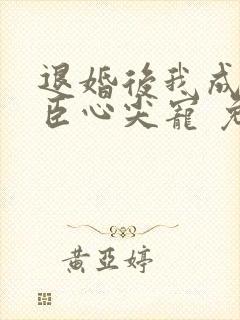 退婚後我成
臣心尖寵
黃亞婷